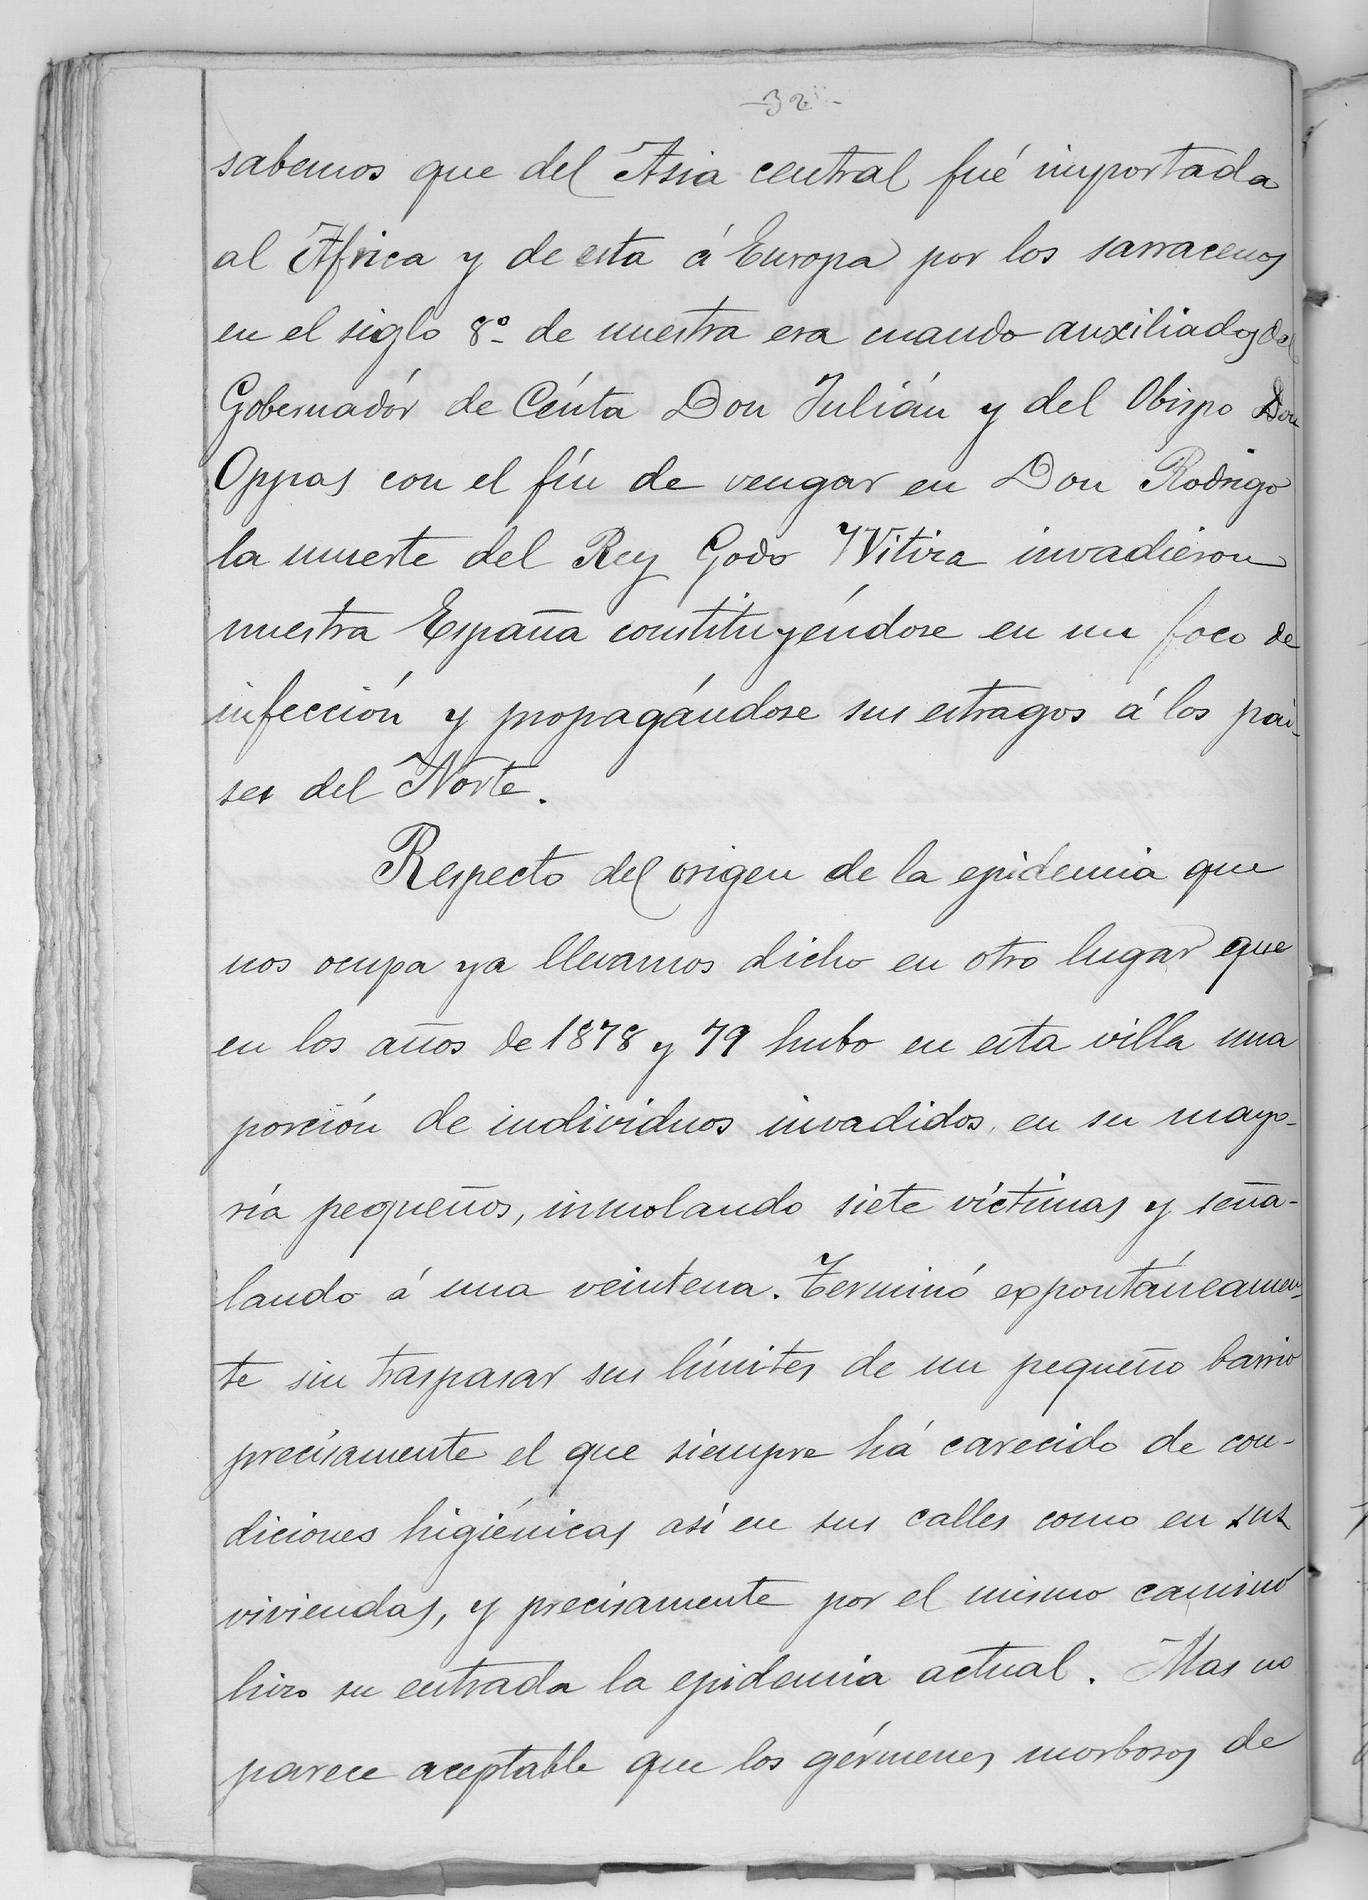 -32-
sabemos que del Asia central fué importada
al África y de esta á Europa por los sarracenos
en el siglo 8º de nuestra era cuando auxiliados del
Gobernadór de Céuta Don Julián y del Obispo Don
Oppas con el fín de vengar en Don Rodrigo
la muerte del Rey Godo Witiza invadieron
nuestra España constituyéndose en un foco de
infección y propagándose sus estragos á los pai-
ses del Norte.
Respecto del origen de la epidemia que
nos ocupa ya llevamos dicho en otro lugar que
en los años de 1878 y 79 hubo en esta villa una
porción de individuos invadidos, en su mayo-
ría pequeños, inmolando siete víctimas y seña-
lando á una veintena. Terminó expontáneamen-
te sin traspasar sus límites de un pequeño barrio
precisamente el que siempre há carecido de con-
diciones higiénicas así en sus calles como en sus
viviendas, y precisamente por el mismo camino
hizo su entrada la epidemia actual. Mas no
parece aceptable que los gérmenes morbosos de